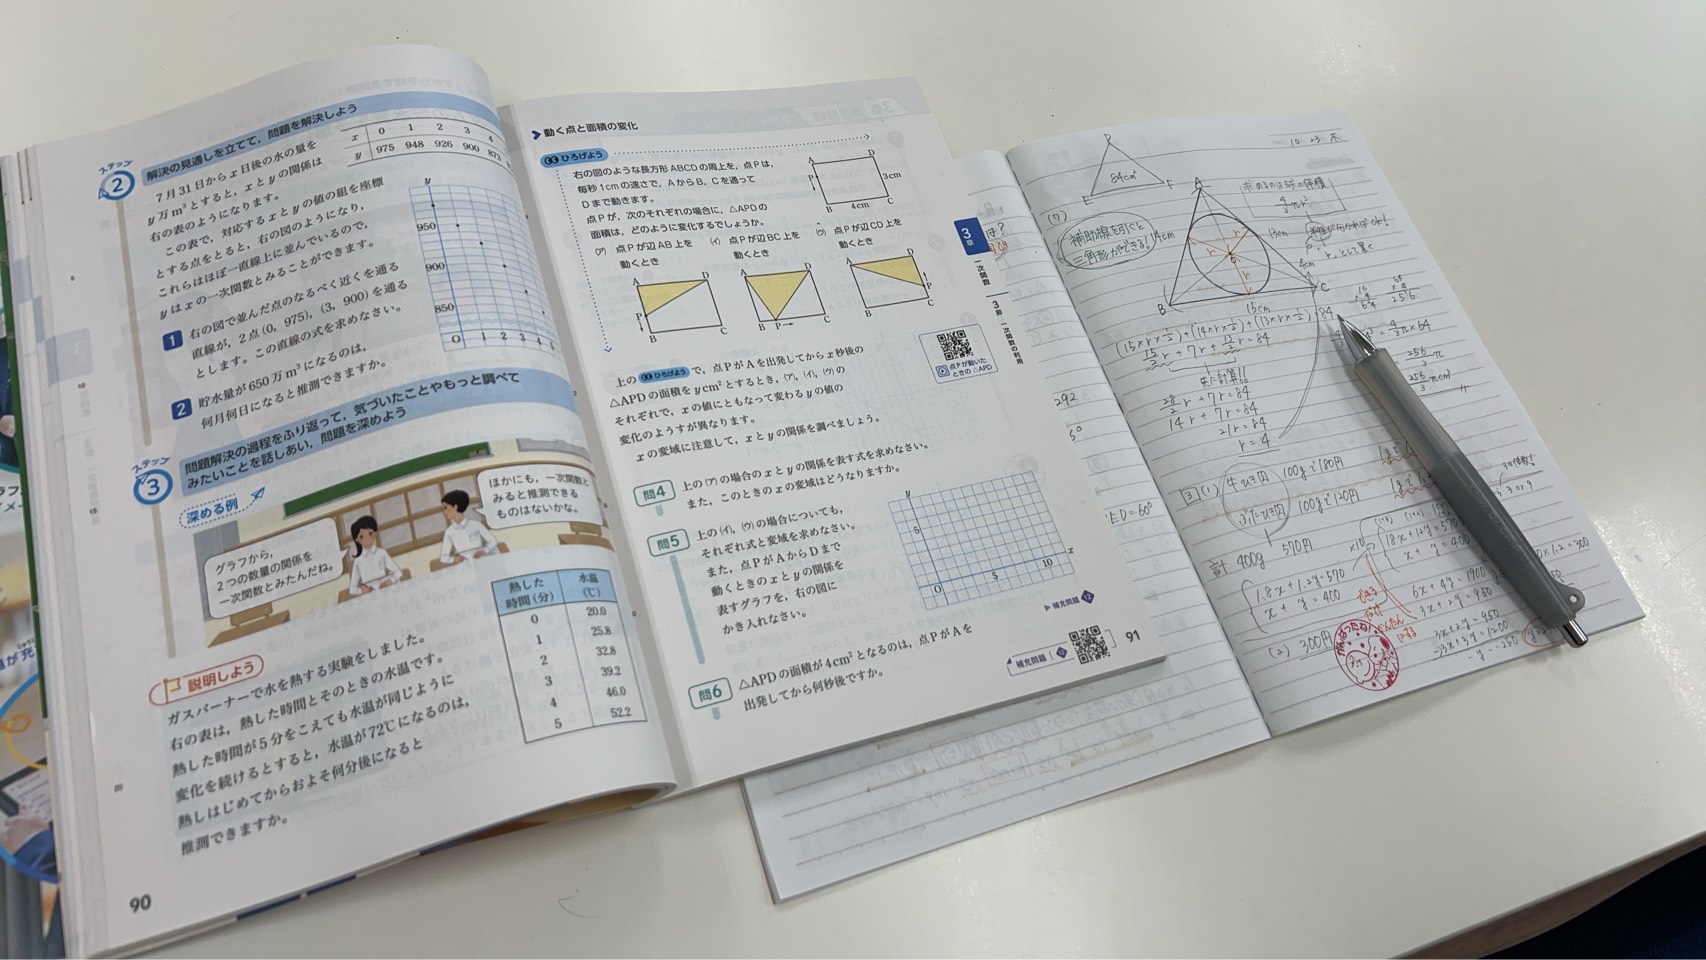 ステップ
2
解決の見通しを立てて，問題を解決しよう
7月31日からx日後の水の量を
y万m³とすると，xとyの関係は
右の表のようになります。
この表で，対応するxとyの値の組を座標
とする点をとると，右の図のようになり，
これらはほぼ一直線上に並んでいるので，
yはxの一次関数とみることができます。
x 0 1 2 3 4
y 975 948 926 900 873
y
950
900
850
O 1 2 3 4 5
1 右の図で並んだ点のなるべく近くを通る
直線が，2点(0, 975)，(3, 900)を通る
とします。この直線の式を求めなさい。
2 貯水量が650万m³になるのは，
何月何日になると推測できますか。
ステップ
3
問題解決の過程をふり返って，気づいたことやもっと調べて
みたいことを話しあい，問題を深めよう
深める例
グラフから，
2つの数量の関係を
一次関数とみたんだね。
ほかにも，一次関数と
みると推測できる
ものはないかな。
説明しよう
ガスバーナーで水を熱する実験をしました。
右の表は，熱した時間とそのときの水温です。
熱した時間が5分をこえても水温が同じように
変化を続けるとすると，水温が72℃になるのは，
熱しはじめてからおよそ何分後になると
推測できますか。
熱した時間(分) 水温(℃)
0 20.0
1 25.8
2 32.8
3 39.2
4 46.0
5 52.2
90
動く点と面積の変化
ひろげよう
右の図のような長方形ABCDの周上を，点Pは，
毎秒1cmの速さで，AからB，Cを通って
Dまで動きます。
点Pが，次のそれぞれの場合に，△APDの
面積は，どのように変化するでしょうか。
A D
P
3cm
B 4cm C
(ア) 点Pが辺AB上を
動くとき
(イ) 点Pが辺BC上を
動くとき
(ウ) 点Pが辺CD上を
動くとき
A D
P
B C
A D
B P C
A D
P
B C
点Pが動いた
ときの△APD
上の ひろげよう で，点PがAを出発してからx秒後の
△APDの面積をy cm²とするとき，(ア)，(イ)，(ウ)の
それぞれで，xの値にともなって変わるyの値の
変化のようすが異なります。
xの変域に注意して，xとyの関係を調べましょう。
問4 上の(ア)の場合のxとyの関係を表す式を求めなさい。
また，このときのxの変域はどうなりますか。
問5 上の(イ)，(ウ)の場合についても，
それぞれ式と変域を求めなさい。
また，点PがAからDまで
動くときのxとyの関係を
表すグラフを，右の図に
かき入れなさい。
y
5
O 5 10 x
補充問題 12
問6 △APDの面積が4cm²となるのは，点PがAを
出発してから何秒後ですか。
補充問題
91
3章
一次関数
3節
一次関数の利用
は？
292
5°
ED=60°
10. 23. 木
D
84cm²
E F
(7)
補助線を引くと
三角形ができる！
求めるのは球の体積
4/3πr³
A
14cm
13cm
r r
O
r
4cm
B 15cm C
(15×r×1/2)+(14×r×1/2)+(13×r×1/2)=84
15/2r+7r+13/2r=84
先に計算!!
28/2r+7r=84
14r+7r=84
21r=84
r=4
256/3π
256/3πcm³
3 (1) 牛ひき肉 100gで180円
ぶたひき肉 100gで120円
計 400g 570円
1.8x+1.2y=570
x+y=400
×10
18x+12y=570
x+y=400
6x+4y=1900
3x+2y=950
3x+2y=950
-3x+3y=1200
-y=-250
(2) 300円
がんばったね！